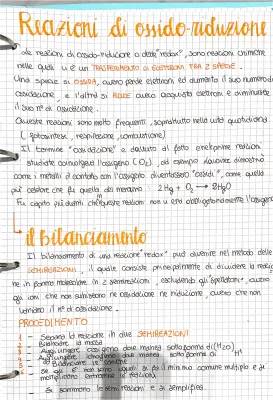 Reazioni di ossido-riduzione
Le reazioni di ossido-riduzione o dette "redox", sono reazioni chimiche
nelle quali vi è un TRASFERIMENTO di ELETTRONI TRA 2 SPECIE.
Una specie si OSSIDA, ovvero perde elettroni ed aumenta il suo numero di
ossidazione e l'altra si RIDUCE ovvero acquista elettroni e diminuisce
il suo n° di ossidazione.
Queste reazioni sono molto frequenti, soprattutto nella vita quotidiana
( fotosintesi, respirazione, combustione)
Il termine "ossidazione" è dovuto al fatto che le prime reazioni
studiate coinvolgono l'ossigeno (O₂), ad esempio Lavoisier dimostrò
come i metalli a contatto con l'ossigeno diventassero "ossidi", come quella
più celebre che fu quella del mercurio 2Hg + O₂ → 2HgO
Fu capito più avanti che queste reazioni non usano obbligatoriamente l'ossigeno
il Bilanciamento
Il bilanciamento di una reazione "redox" può avvenire nel metodo delle
SEMIREAZIONI, il quale consiste principalmente di dividere la redox
in forma molecolare in 2 semireazioni, escludendo gli "spettatori", ovvero
gli ioni che non subiscono né ossidazione né riduzione, ovvero che non
variano il n° di ossidazione.
PROCEDIMENTO
- Separa la reazione in due SEMIREAZIONI
- Bilanciare la massa
- Aggiungere ossigeno dove manca sotto forma di (H₂O)
- Aggiungere idrogeno dove manca sotto forma di H⁺
- Bilanciare le cariche
- Se gli e⁻ non sono uguali si fa il minimo comune multiplo e si
moltiplicano entrambe le reazioni
- Si sommano le semireazioni e si semplifica